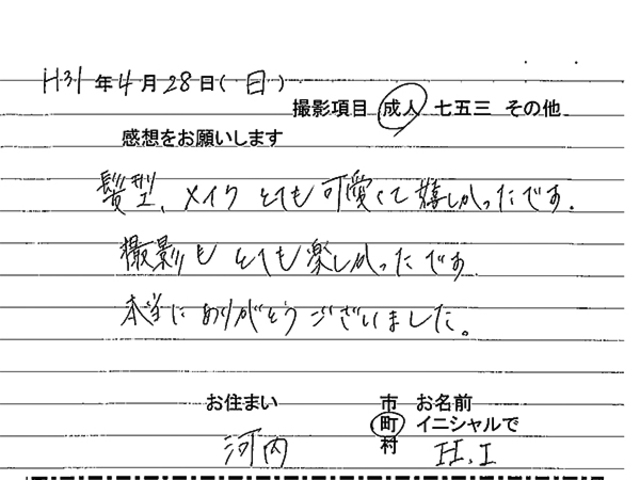 H31年4月28日(日)
撮影項目 成人 七五三 その他
感想をお願いします
髪型、メイクとても可愛くて嬉しかったです.
撮影もとても楽しかったです
本当にありがとうございました。
お住まい 市 お名前
町 イニシャルで
河内 村 H.I